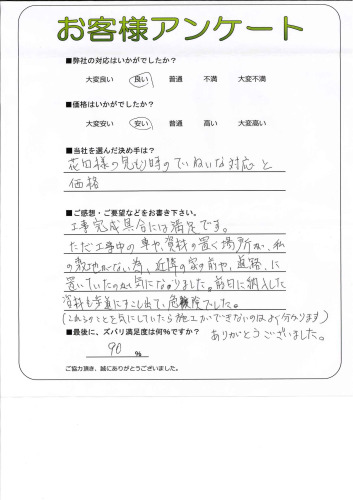 お客様アンケート
■弊社の対応はいかがでしたか？
大変良い 良い 普通 不満 大変不満
■価格はいかがでしたか？
大変安い 安い 普通 高い 大変高い
■当社を選んだ決め手は？
花田様の見もり時のていねいな対応と
価格
■ご感想・ご要望などをお書き下さい。
工事完成具合には満足です。
ただ工事中の車や資料の置く場所が、私
の敷地がない為、近隣の家の前や、道路に
置いていたのが気になりました。前日に納入した
資料も歩道にすこし出て、危険でした。
(これらのことを気にしていたら施工ができないのはよく分かります)
ありがとうございました。
■最後に、ズバリ満足度は何％ですか？
90 ％
ご協力頂き、誠にありがとうございました。